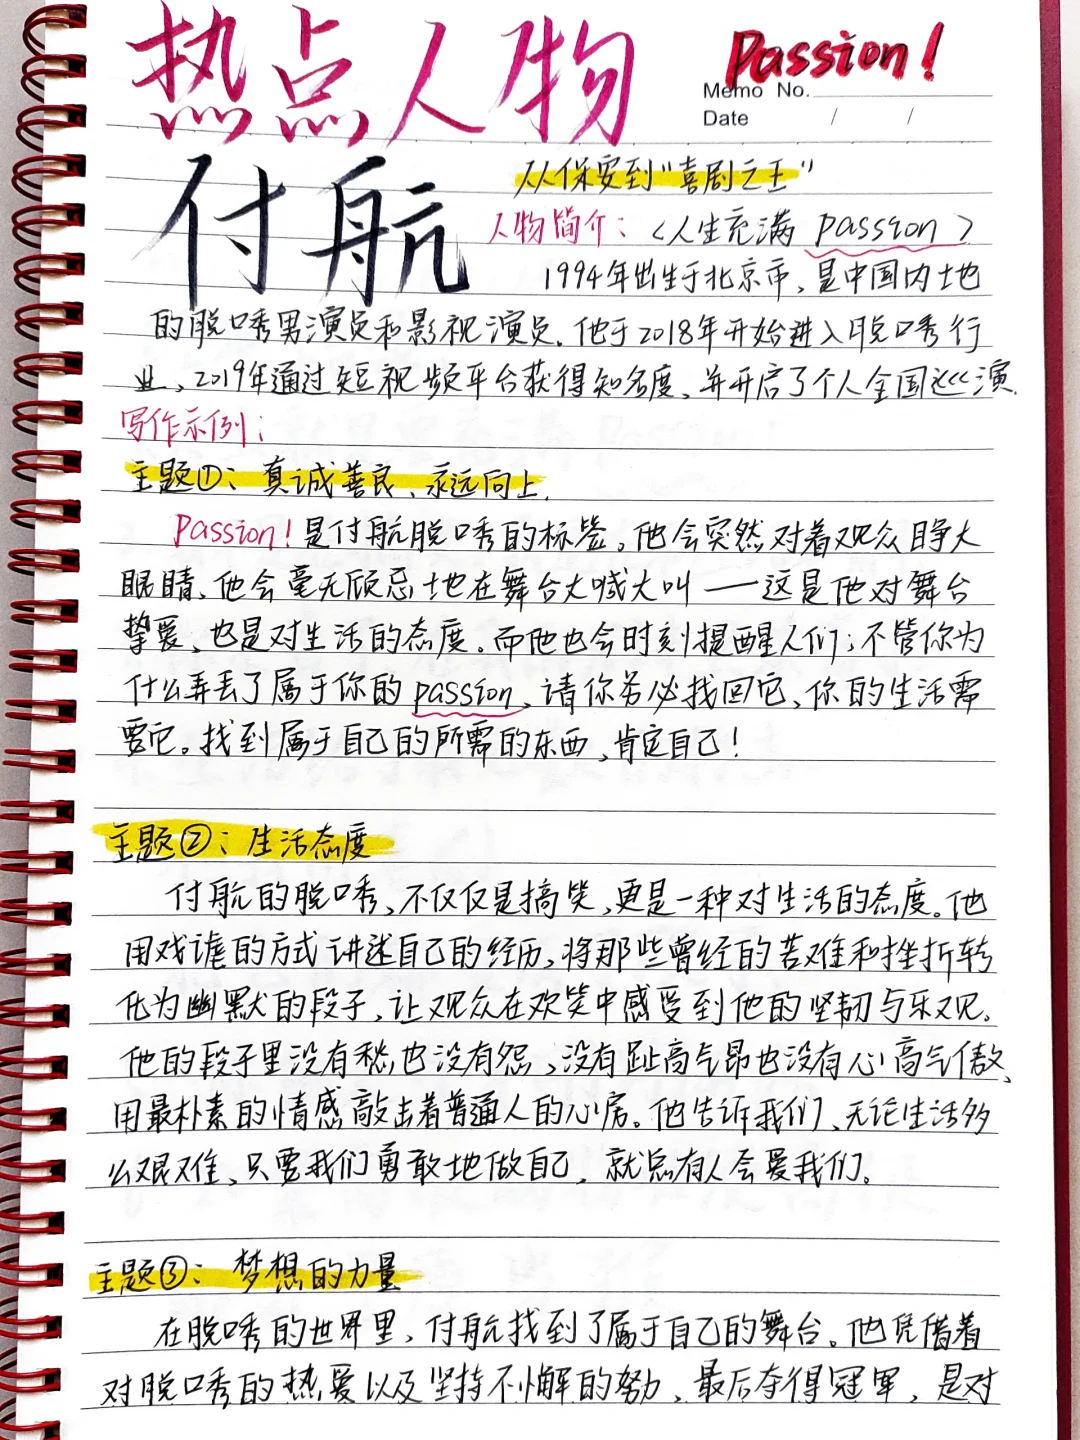 热点人物
Passion!
Memo No.
Date / /
付航
从保安到“喜剧之王”
人物简介：〈人生充满passion〉
1994年出生于北京市、是中国内地
的脱口秀男演员和影视演员.他于2018年开始进入脱口秀行
业、2019年通过短视频平台获得知名度、并开启了个人全国巡演.
写作示例：
主题①：真诚善良、永远向上.
Passion!是付航脱口秀的标签。他会突然对着观众睁大
眼睛、他会毫无顾忌地在舞台大喊大叫——这是他对舞台
挚爱、也是对生活的态度。而他也会时刻提醒人们；不管你为
什么弄丢了属于你的passion、请你务必找回它、你的生活需
要它。找到属于自己的所需的东西、肯定自己!
主题②：生活态度
付航的脱口秀、不仅仅是搞笑、更是一种对生活的态度。他
用戏谑的方式讲述自己的经历、将那些曾经的苦难和挫折转
化为幽默的段子、让观众在欢笑中感受到他的坚韧与乐观.
他的段子里没有愁也没有怨、没有趾高气昂也没有心高气傲、
用最朴素的情感敲击着普通人的心房。他告诉我们、无论生活多
么艰难、只要我们勇敢地做自己、就总有人会爱我们。
主题③：梦想的力量
在脱口秀的世界里、付航找到了属于自己的舞台。他凭借着
对脱口秀的热爱以及坚持不懈的努力、最后夺得冠军、是对